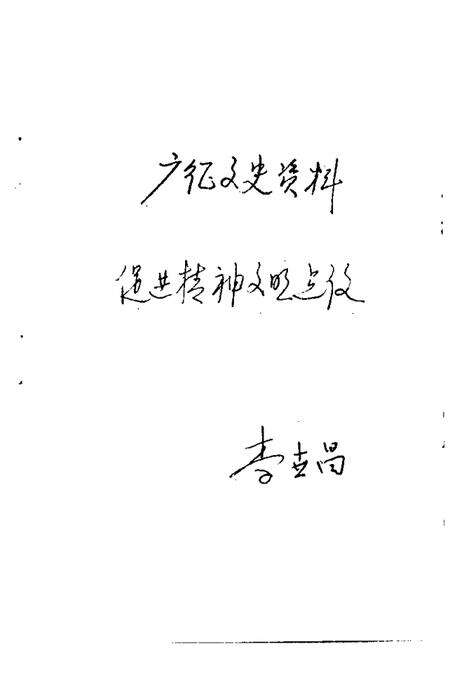 广征文史资料
促进精神文明建设
李世昌